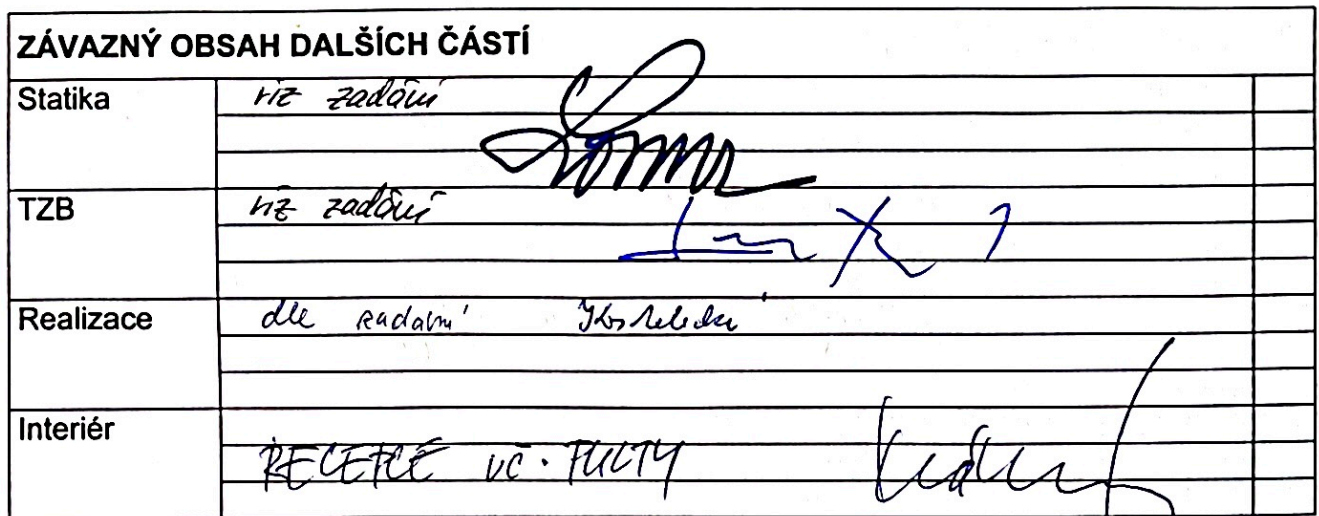 ZÁVAZNÝ OBSAH DALŠÍCH ČÁSTÍ
Statika viz zadání
TZB viz zadání
Realizace dle zadání
Interiér
RECEPCE VČ.